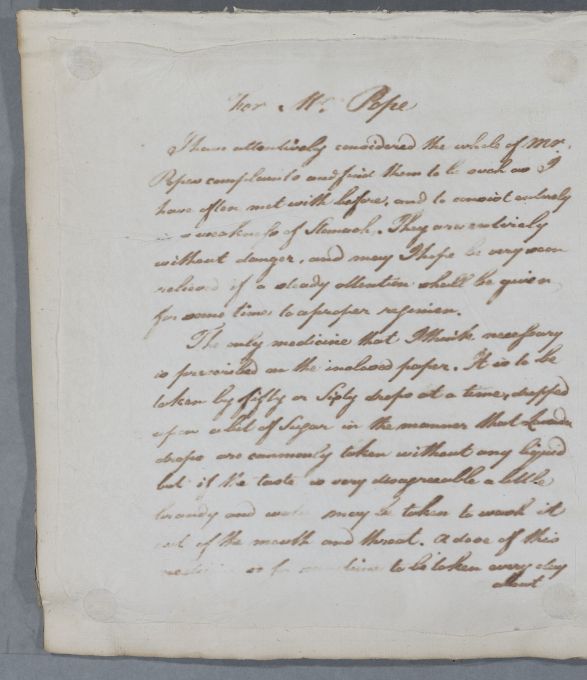 For Mr. Pope
I have attentively considered the whole of Mr.
Popes complaints and find them to be such as I
have often met with before, and to consist entirely
in weakness of Stomach. They are entirely
without danger, and may I hope be very soon
relieved if a steady attention shall be given
for some time to a proper regimen.
The only medicine that I think necessary
is prescribed on the inclosed paper. It is to be
taken by fifty or Sixty drops at a time, dropped
upon a bit of Sugar in the manner that
drops are commonly taken without any liquid
but if the taste is very disagreeable a little
brandy and water may be taken to wash it
out of the mouth and throat. A dose of this
medicine is for sometime to be taken every day
about